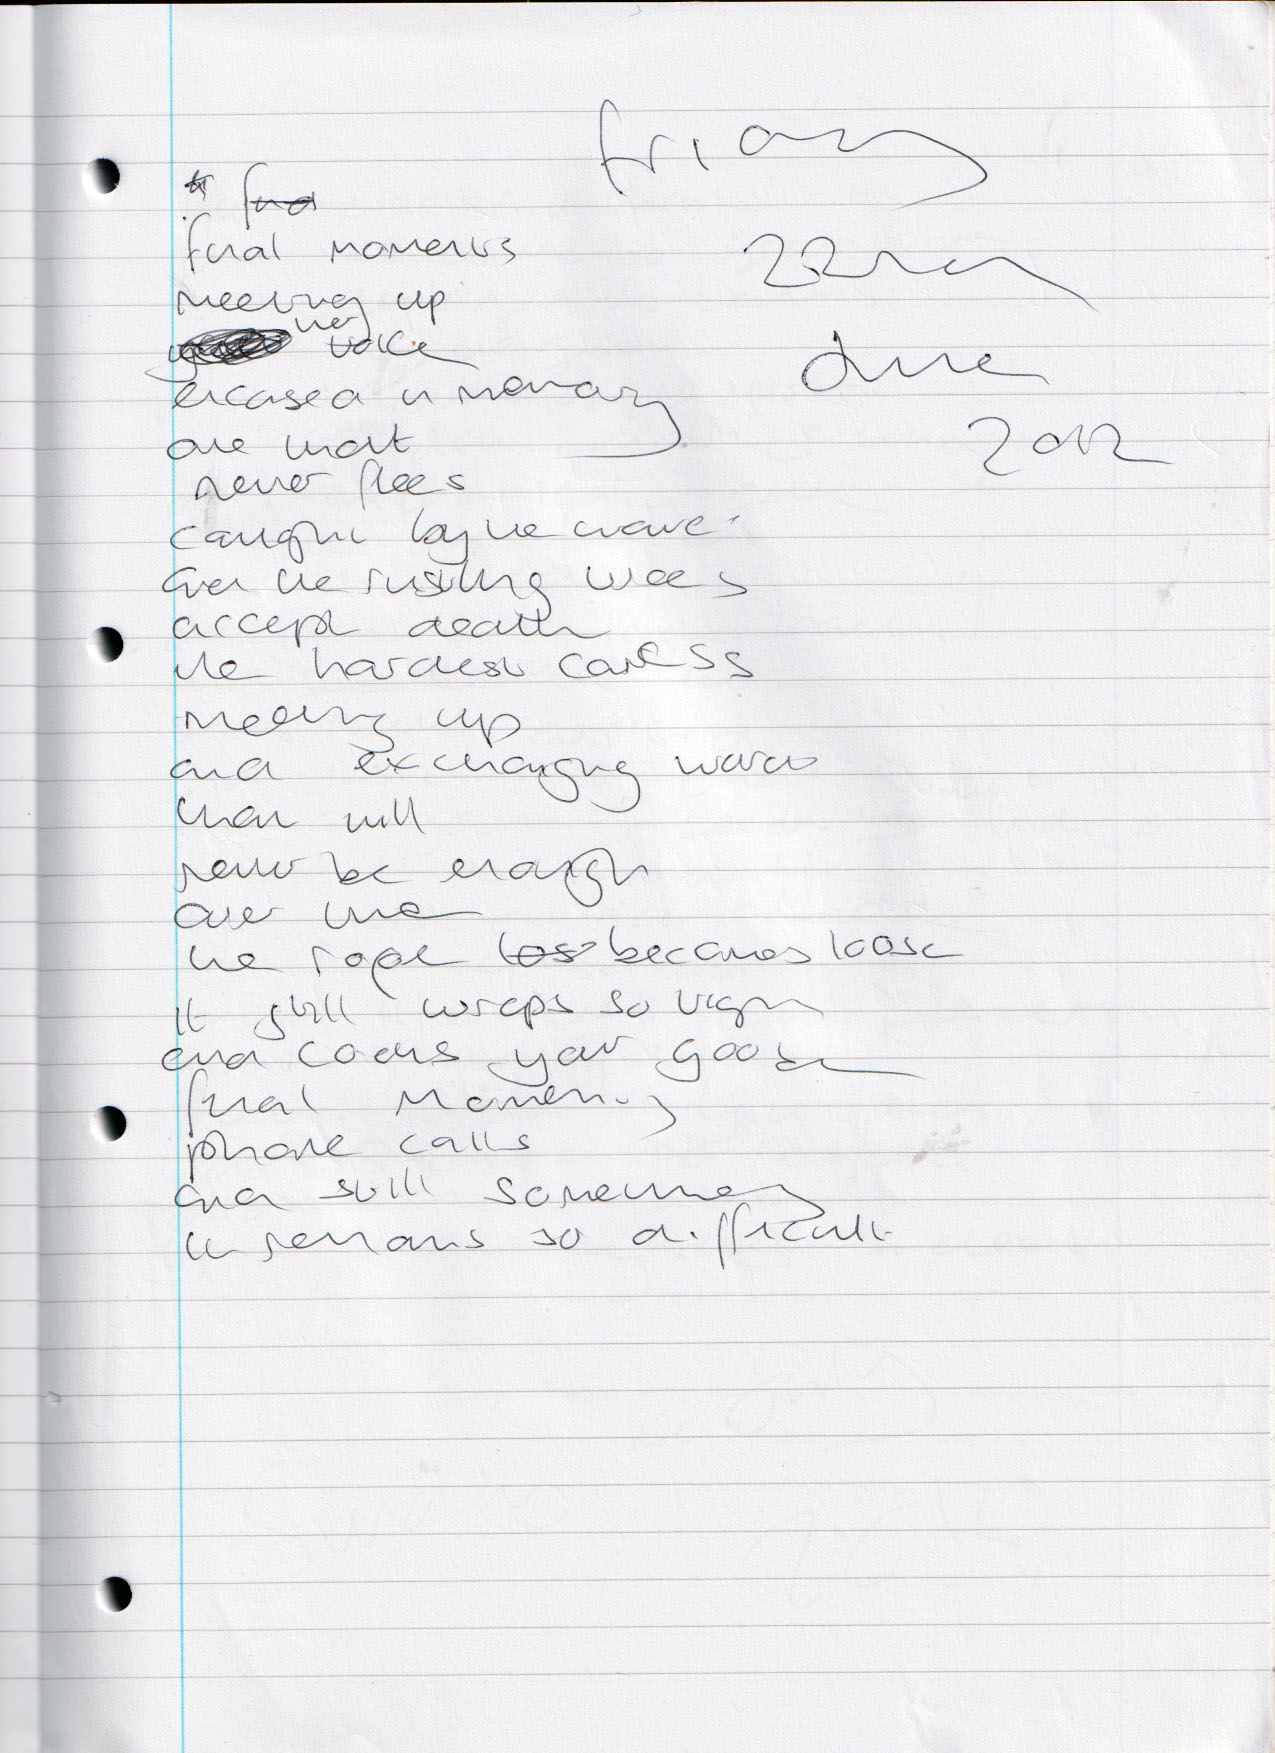 friday
22nd
June
2012
*
final moments
meeting up
her
voice
encased in memory
one that
never flees
caught by the wave
and the rustling trees
accept death
the hardest caress
meeting up
and exchanging words
that will
never be enough
over time
the rope becomes loose
it still wraps so tight
and cooks your goose
final
phone calls
and still someway
it remains so difficult